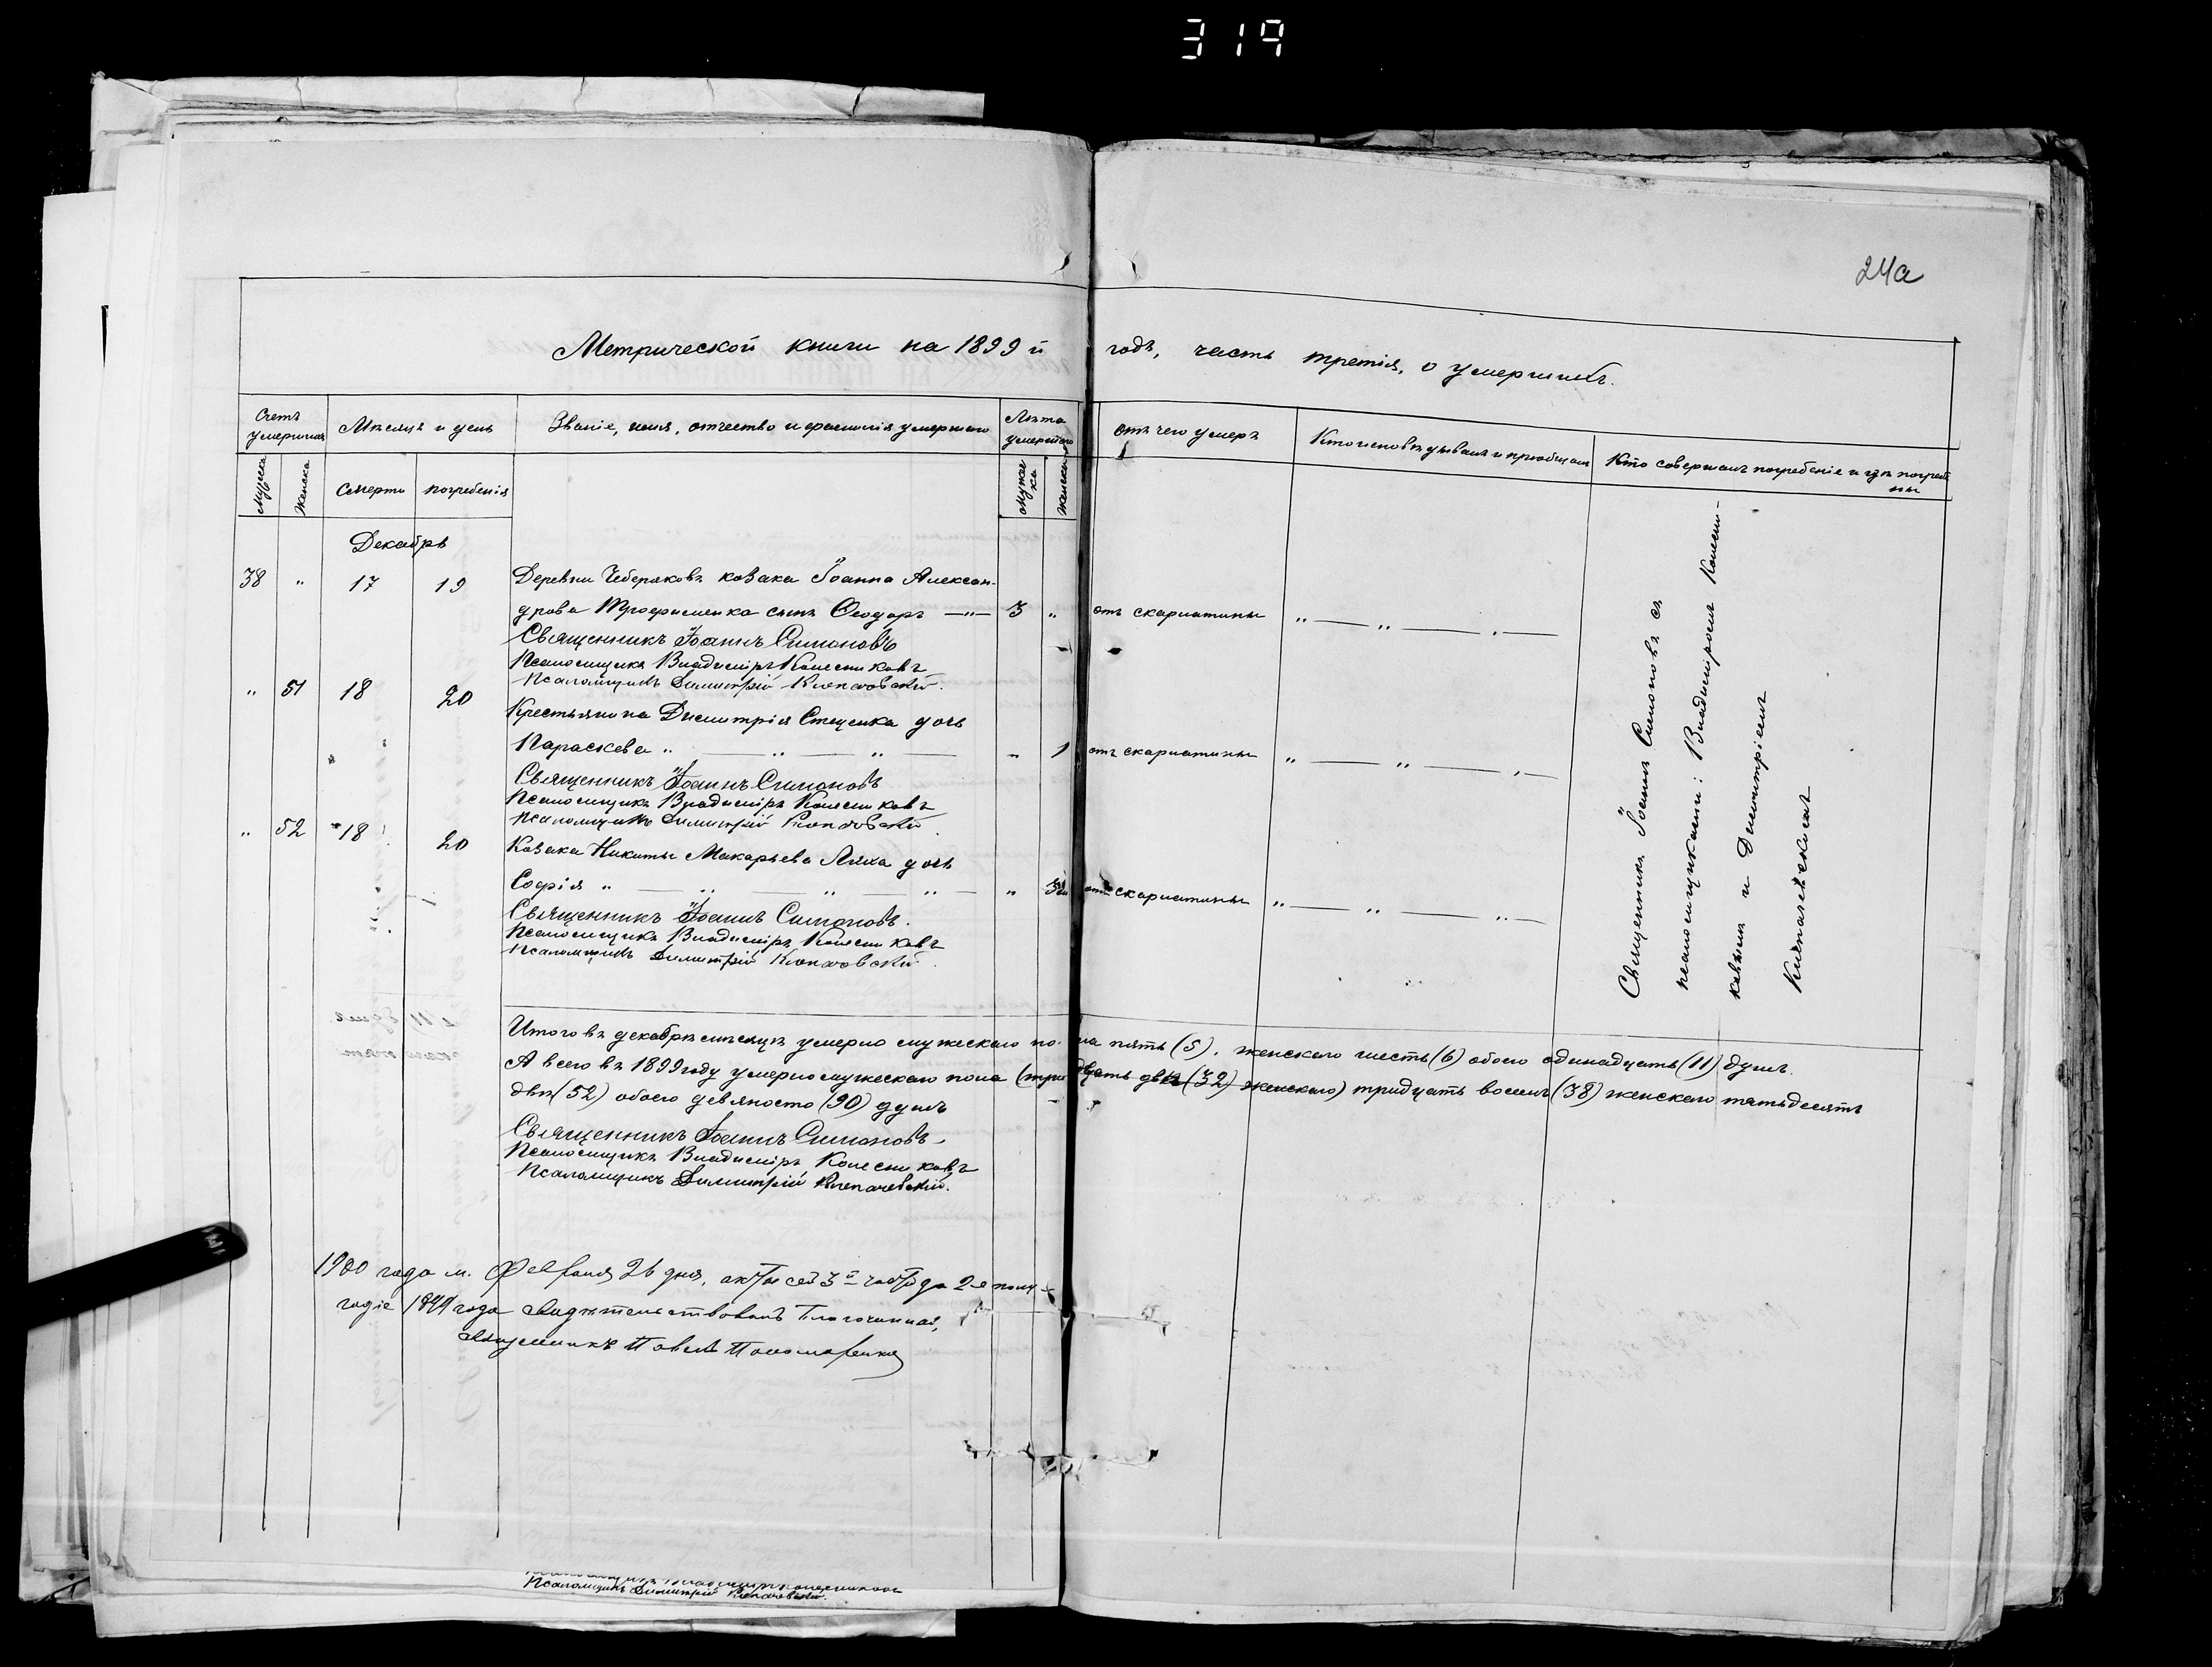 319
24а
Метрической книги на 1899 й годъ, часть третія, о умершихъ.
Счетъ умершихъ
Мѣсяцъ и день
Званіе, имя, отчество и фамилія умершаго
Лѣта умершаго
отъ чего умеръ
Кто исповѣдывалъ и пріобщалъ
Кто совершалъ погребеніе и гдѣ погребе
ны
Мужска
Женска
Смерти
погребенія
Муже
ка
Женска
Декабрь
38 " 17 19 Деревни Чеберяковъ козака Іоанна Алексан-
дрова Трофименка сынъ Ѳеодоръ — " — 3 " отъ скарлатины " — " — " —
Священникъ Іоаннъ Симоновъ
Псаломщикъ Владиміръ Колесниковъ
Псаломщикъ Димитрій Клепачевскій.
" 51 18 20 Крестьянина Димитрія Стеценка дочь
Параскева " — " — " — " 1 отъ скарлатины " — " — " —
Священникъ Іоаннъ Симоновъ
Псаломщикъ Владиміръ Колесниковъ
Псаломщикъ Димитрій Клепачевскій.
" 52 18 20 Козака Никиты Макарьева Ляха дочь
Софія " — " — " — " — " отъ скарлатины " — " — " —
Священникъ Іоаннъ Симоновъ.
Псаломщикъ Владиміръ Колесниковъ
Псаломщикъ Димитрій Клепачевскій.
Священникъ Іоаннъ Симоновъ съ
псаломщиками: Владиміромъ Колесни-
ковымъ и Димитріемъ
Клепачевскимъ
Итого въ декабрѣ мѣсяцѣ умерло мужескаго пола пять (5), женскаго шесть (6) обоего одинадцать (11) душъ.
А всего въ 1899 году умерло мужескаго пола (тридцать два (32) женскаго) тридцать восемь (38) женскаго пятьдесятъ
двѣ (52) обоего девяносто (90) душъ
Священникъ Іоаннъ Симоновъ
Псаломщикъ Владиміръ Колесниковъ
Псаломщикъ Димитрій Клепачевскій.
1900 года м. Февраля 26 дня, акты сей 3й части за 2-е полу-
годіе 1899 года свидѣтельствовалъ Благочинный,
Священникъ Павелъ Пономаренко
Псаломщикъ Владиміръ Колесниковъ
Псаломщикъ Димитрій Клепачевскій.